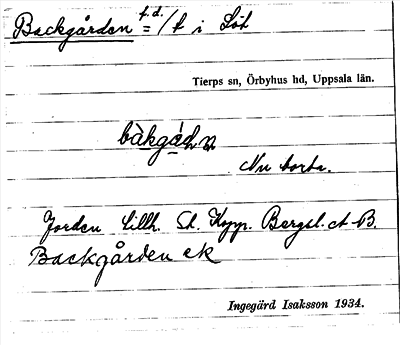 Backgården f.d. =/f i Löt
Tierps sn, Örbyhus hd, Uppsala län.
bàkgáḍṇ
Nu borta.
Jorden tillh. St. Kopp. Bergsl. A-B.
Backgården ek
Ingegärd Isaksson 1934.